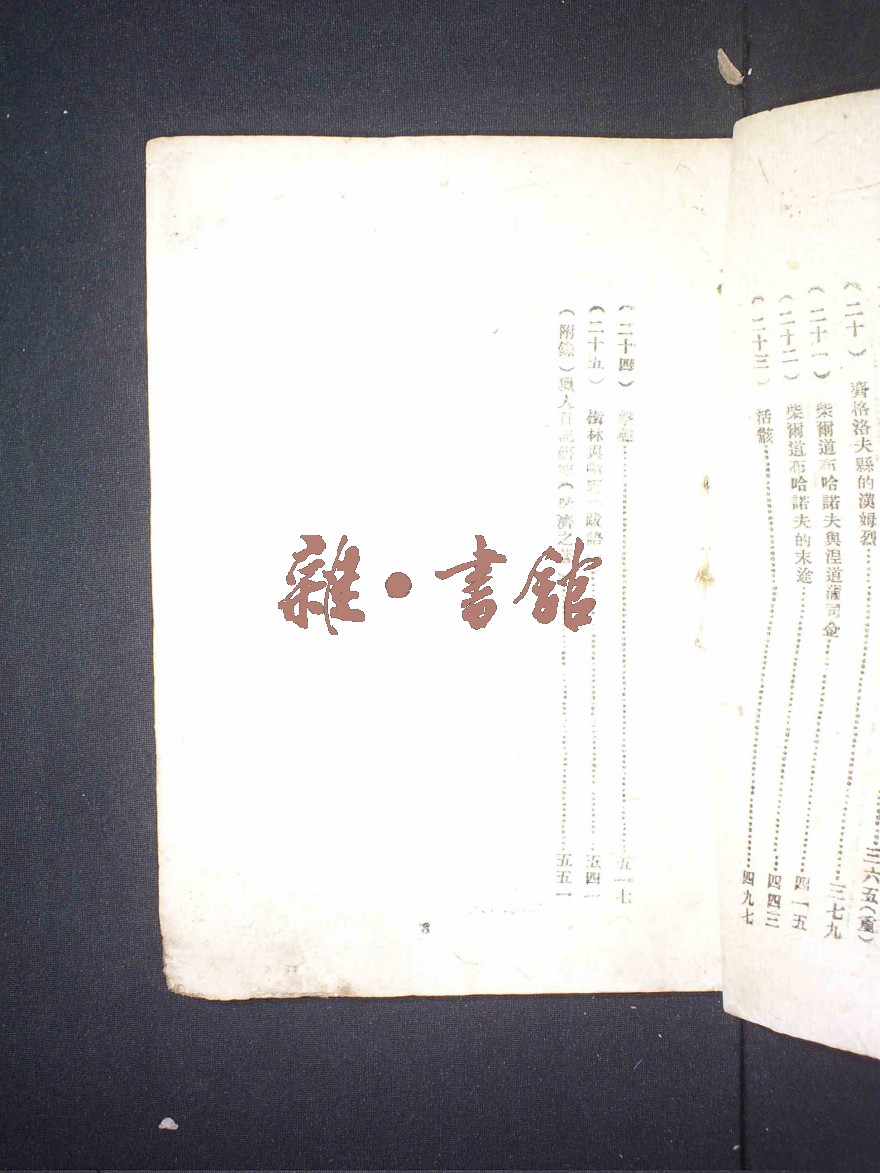 （二十）　齊格洛夫縣的漢姆烈……三六五（重）
（二十一）　柴爾道布哈諾夫與涅道蒲司金……三七九
（二十二）　柴爾道布哈諾夫的末途……四一五
四四三
（二十三）　活骸……四九七
（二十四）……五一七
（二十五）　樹林與　跋語……五四一
（附錄）獵人日記研究（　濟之……五五一
3
雜・書館